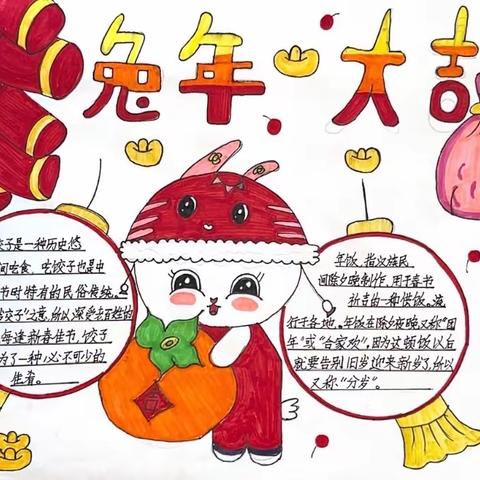 兔年大吉
子是一种历史悠
间吃食，吃饺子也是中
节时特有的民俗传统。
交子"之意，所以深受老百姓的
每逢新春佳节，饺子
为了一种必不可少的
佳肴。
年饭，指汉族民
间除夕晚制作，用于春节
吉的一种饭。流
行于各地。年饭在除夕夜晚，又称"团
年"或"合家欢"，因为这顿饭以后
就要告别旧岁迎来新岁了，所以
又称"分岁"。